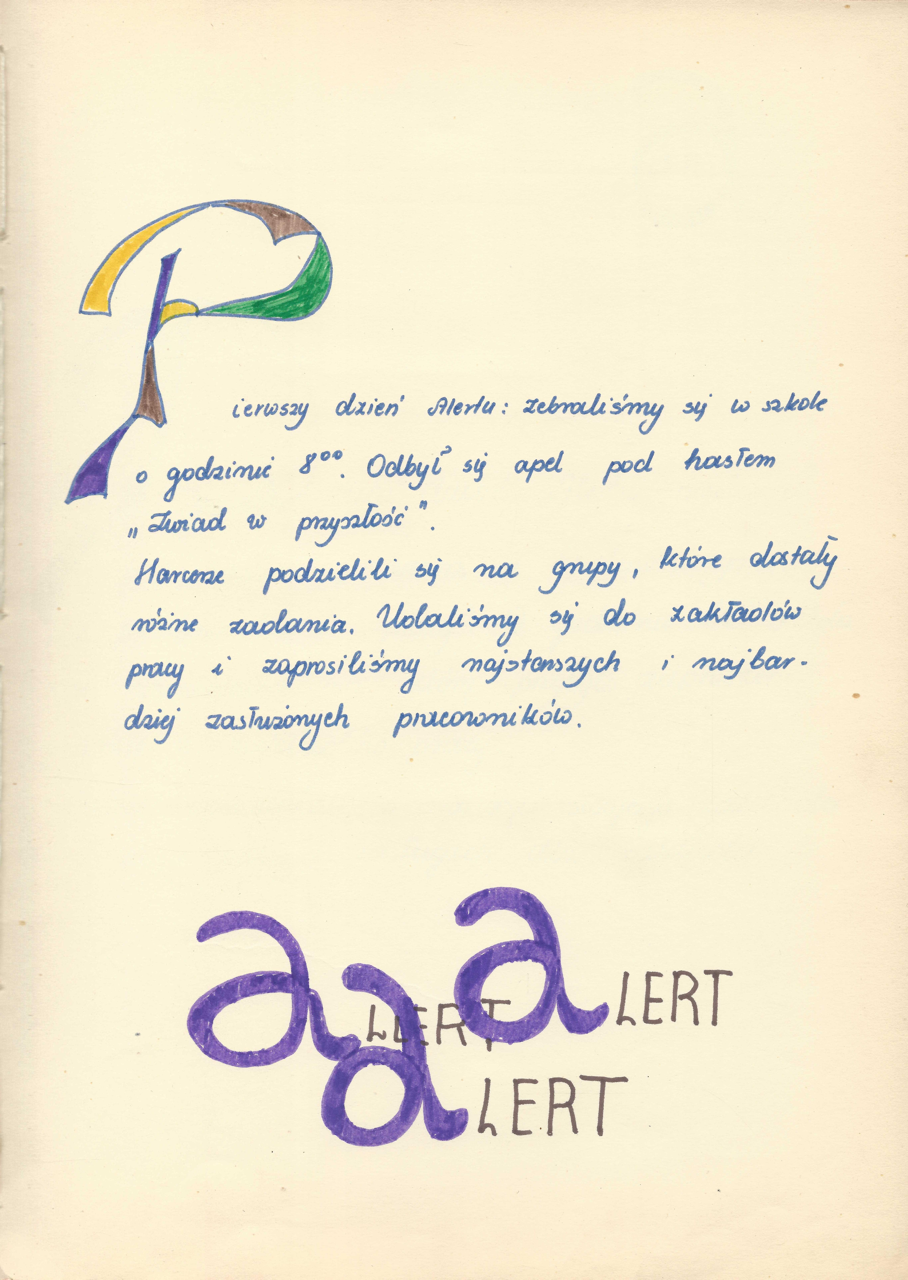 Pierwszy dzień Alertu: zebraliśmy się w szkole
o godzinie 8⁰⁰. Odbył się apel pod hasłem
„Zwiad w przyszłość".
Harcerze podzielili się na grupy, które dostały
różne zadania. Udaliśmy się do zakładów
pracy i zaprosiliśmy najstarszych i najbar-
dziej zasłużonych pracowników.
aLERT
aLERT
aLERT